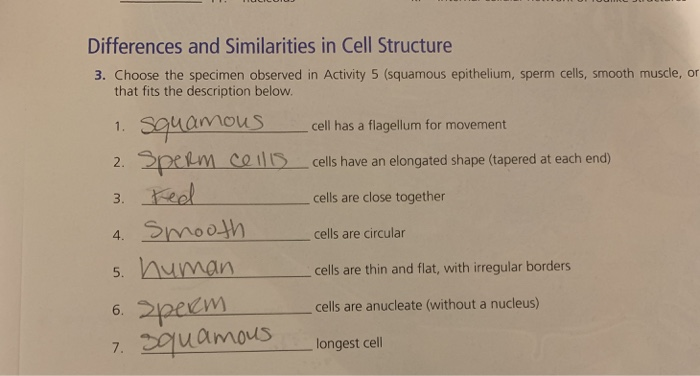 Differences and Similarities in Cell Structure
3. Choose the specimen observed in Activity 5 (squamous epithelium, sperm cells, smooth muscle, or
that fits the description below.
1. squamous cell has a flagellum for movement
2. Sperm cells cells have an elongated shape (tapered at each end)
3. red cells are close together
4. Smooth cells are circular
5. human cells are thin and flat, with irregular borders
6. sperm cells are anucleate (without a nucleus)
7. squamous longest cell